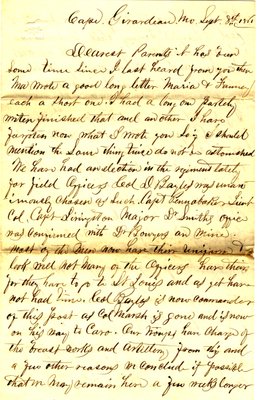 Cape Girardeau Mo. Sept. 8th 1861
Dearest Parents It has been
some time since I last heard from you then
Ma wrote a good long letter Maria & Fannie
each a short one I had a long one partly
written finished that and another I have
forgotten now what I wrote you so if I should
mention the same thing twice do not be astonished
We have had an election in the regiment lately
for field Officers Col D Bayles was unan
imously chosen as such Capt Lieut
Col. Capt Livingston Major Dr Smiths
was confirmed with Dr Bowers as
most of the Men now have their uniforms &
look well not many of the Officers have theirs
for they have to go to St Louis and as yet have
not had time. Col Bayles is now commander
of this post as Col Marsh is gone and is now
on his way to Cairo. Our troops have charge of
the breast works and Artillery from this and
a few other reasons we conclude it possible
that we may remain here a few weeks longer